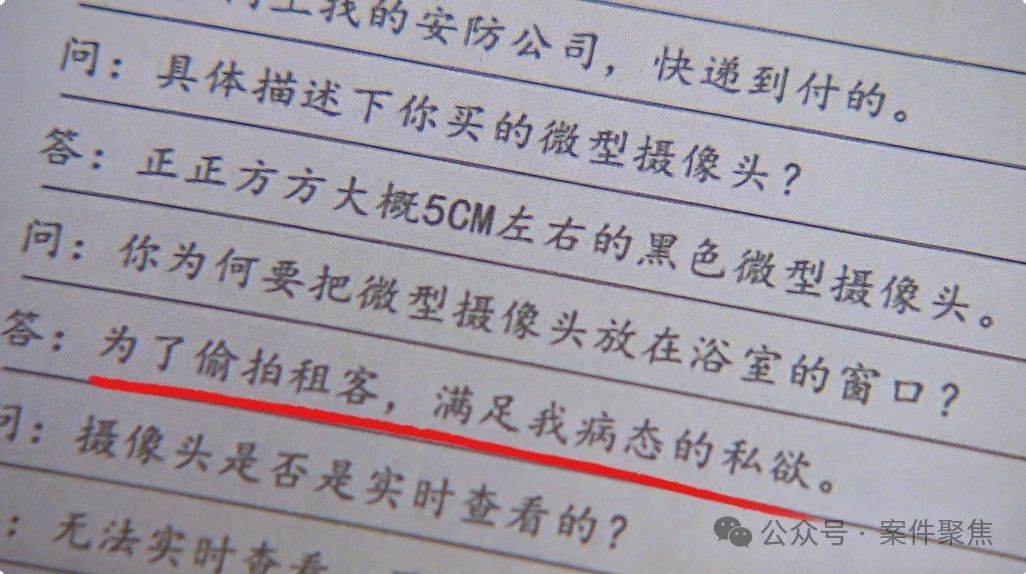 上找的安防公司，快递到付的。
问：具体描述下你买的微型摄像头？
答：正正方方大概5CM左右的黑色微型摄像头。
问：你为何要把微型摄像头放在浴室的窗口？
答：为了偷拍租客，满足我病态的私欲。
问：摄像头是否是实时查看的？
：无法实时查看
公众号·案件聚焦